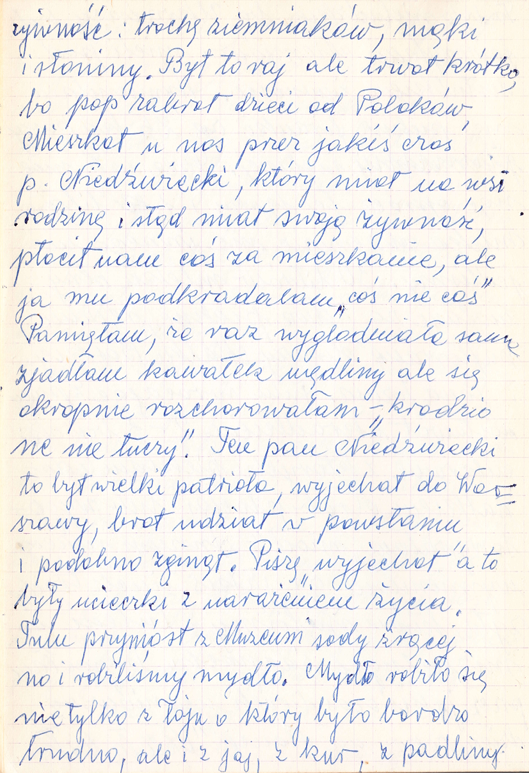 żywność: trochę ziemniaków, mąki
i słoniny. Był to raj ale trwał krótko,
bo pop zabrał dzieci od Polaków,
Mieszkał u nas przez jakiś czas
p. Niedźwiecki, który miał na wsi
rodzinę i stąd miał swoją żywność,
płacił nam coś za mieszkanie, ale
ja mu podkradałam „coś nie coś"
Pamiętam, że raz wygłodniała sama
zjadłam kawałek wędliny ale się
okropnie rozchorowałam – „kradzio
ne nie tuczy". Ten pan Niedźwiecki
to był wielki patriota, wyjechał do War=
szawy, brał udział w powstaniu
i podobno zginął. Piszę „wyjechał" a to
były ucieczki z narażeniem życia.
przyniósł z Muzeum sody żrącej
no i robiliśmy mydło. Mydło robiło się
nie tylko z łoju o który było bardzo
trudno, ale i z jaj, z kur, z padliny.